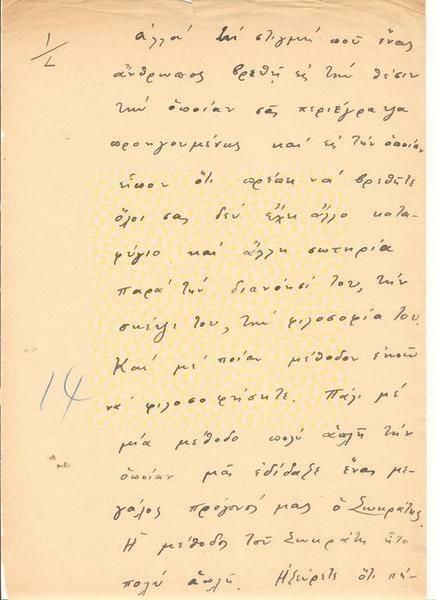 1/2
ἀλλά τή στιγμή πού ἕνας
ἄνθρωπος βρεθῇ εἰς τήν θέσιν
τήν ὁποίαν σᾶς περιέγραψα
προηγουμένως καί εἰς τήν ὁποίαν
εἶπον ὅτι πρέπει νά βρεθῆτε
ὅλοι σας δέν ἔχει ἄλλο κατα-
φύγιο καί ἄλλη σωτηρία
παρά τήν διανόησί του, τήν
σκέψι του, τήν φιλοσοφία του.
Καί μέ ποίαν μέθοδον
14
νά φιλοσοφήσητε. Πάλι μέ
μιά μέθοδο πολύ ἁπλῆ τήν
ὁποίαν μᾶς ἐδίδαξε ἕνας με-
γάλος πρόγονός μας ὁ Σωκράτης.
Ἡ μέθοδος τοῦ Σωκράτη ἦτο
πολύ ἁπλῆ. Ἠξεύρετε ὅτι πή-